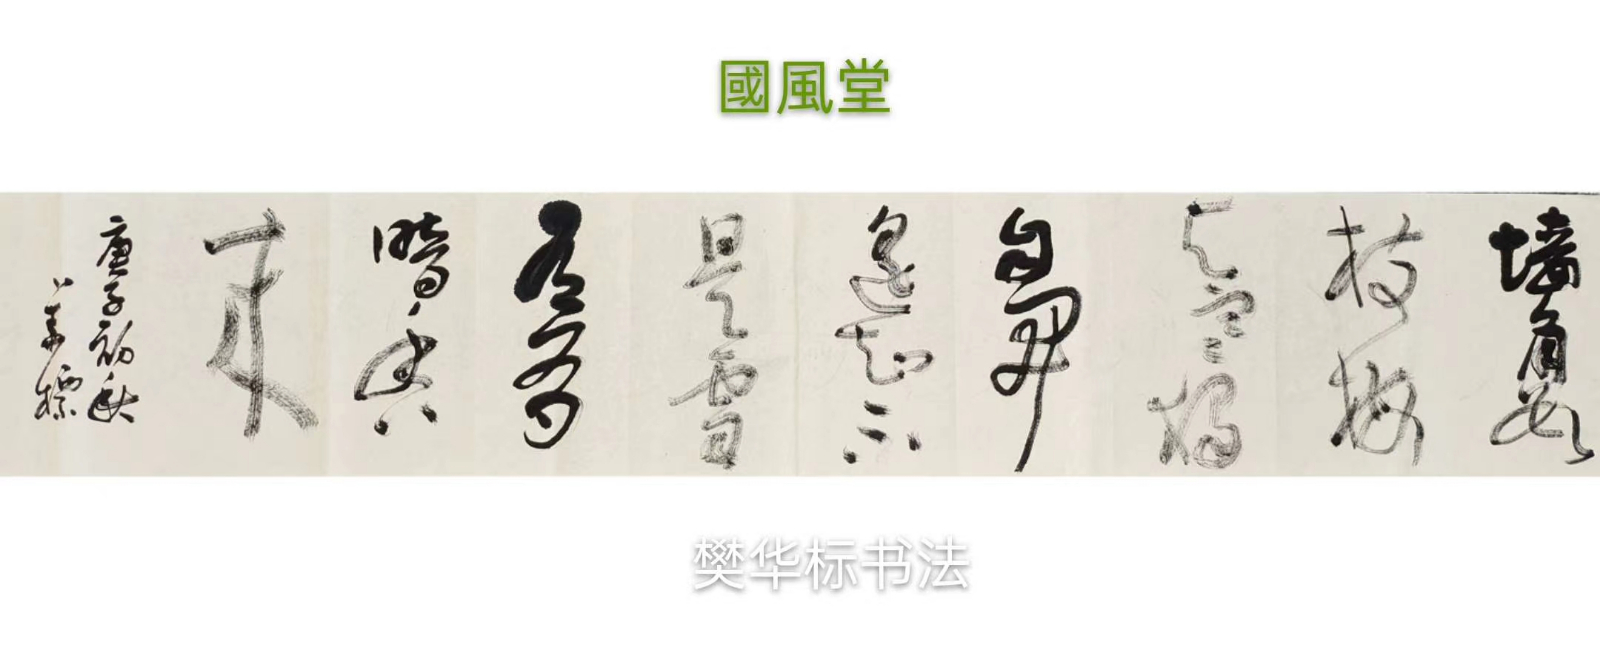 國風堂
墙角数
枝梅
凌寒独
自開
遥知不
是雪
為有
暗香
来
庚子初秋
華標
樊华标书法